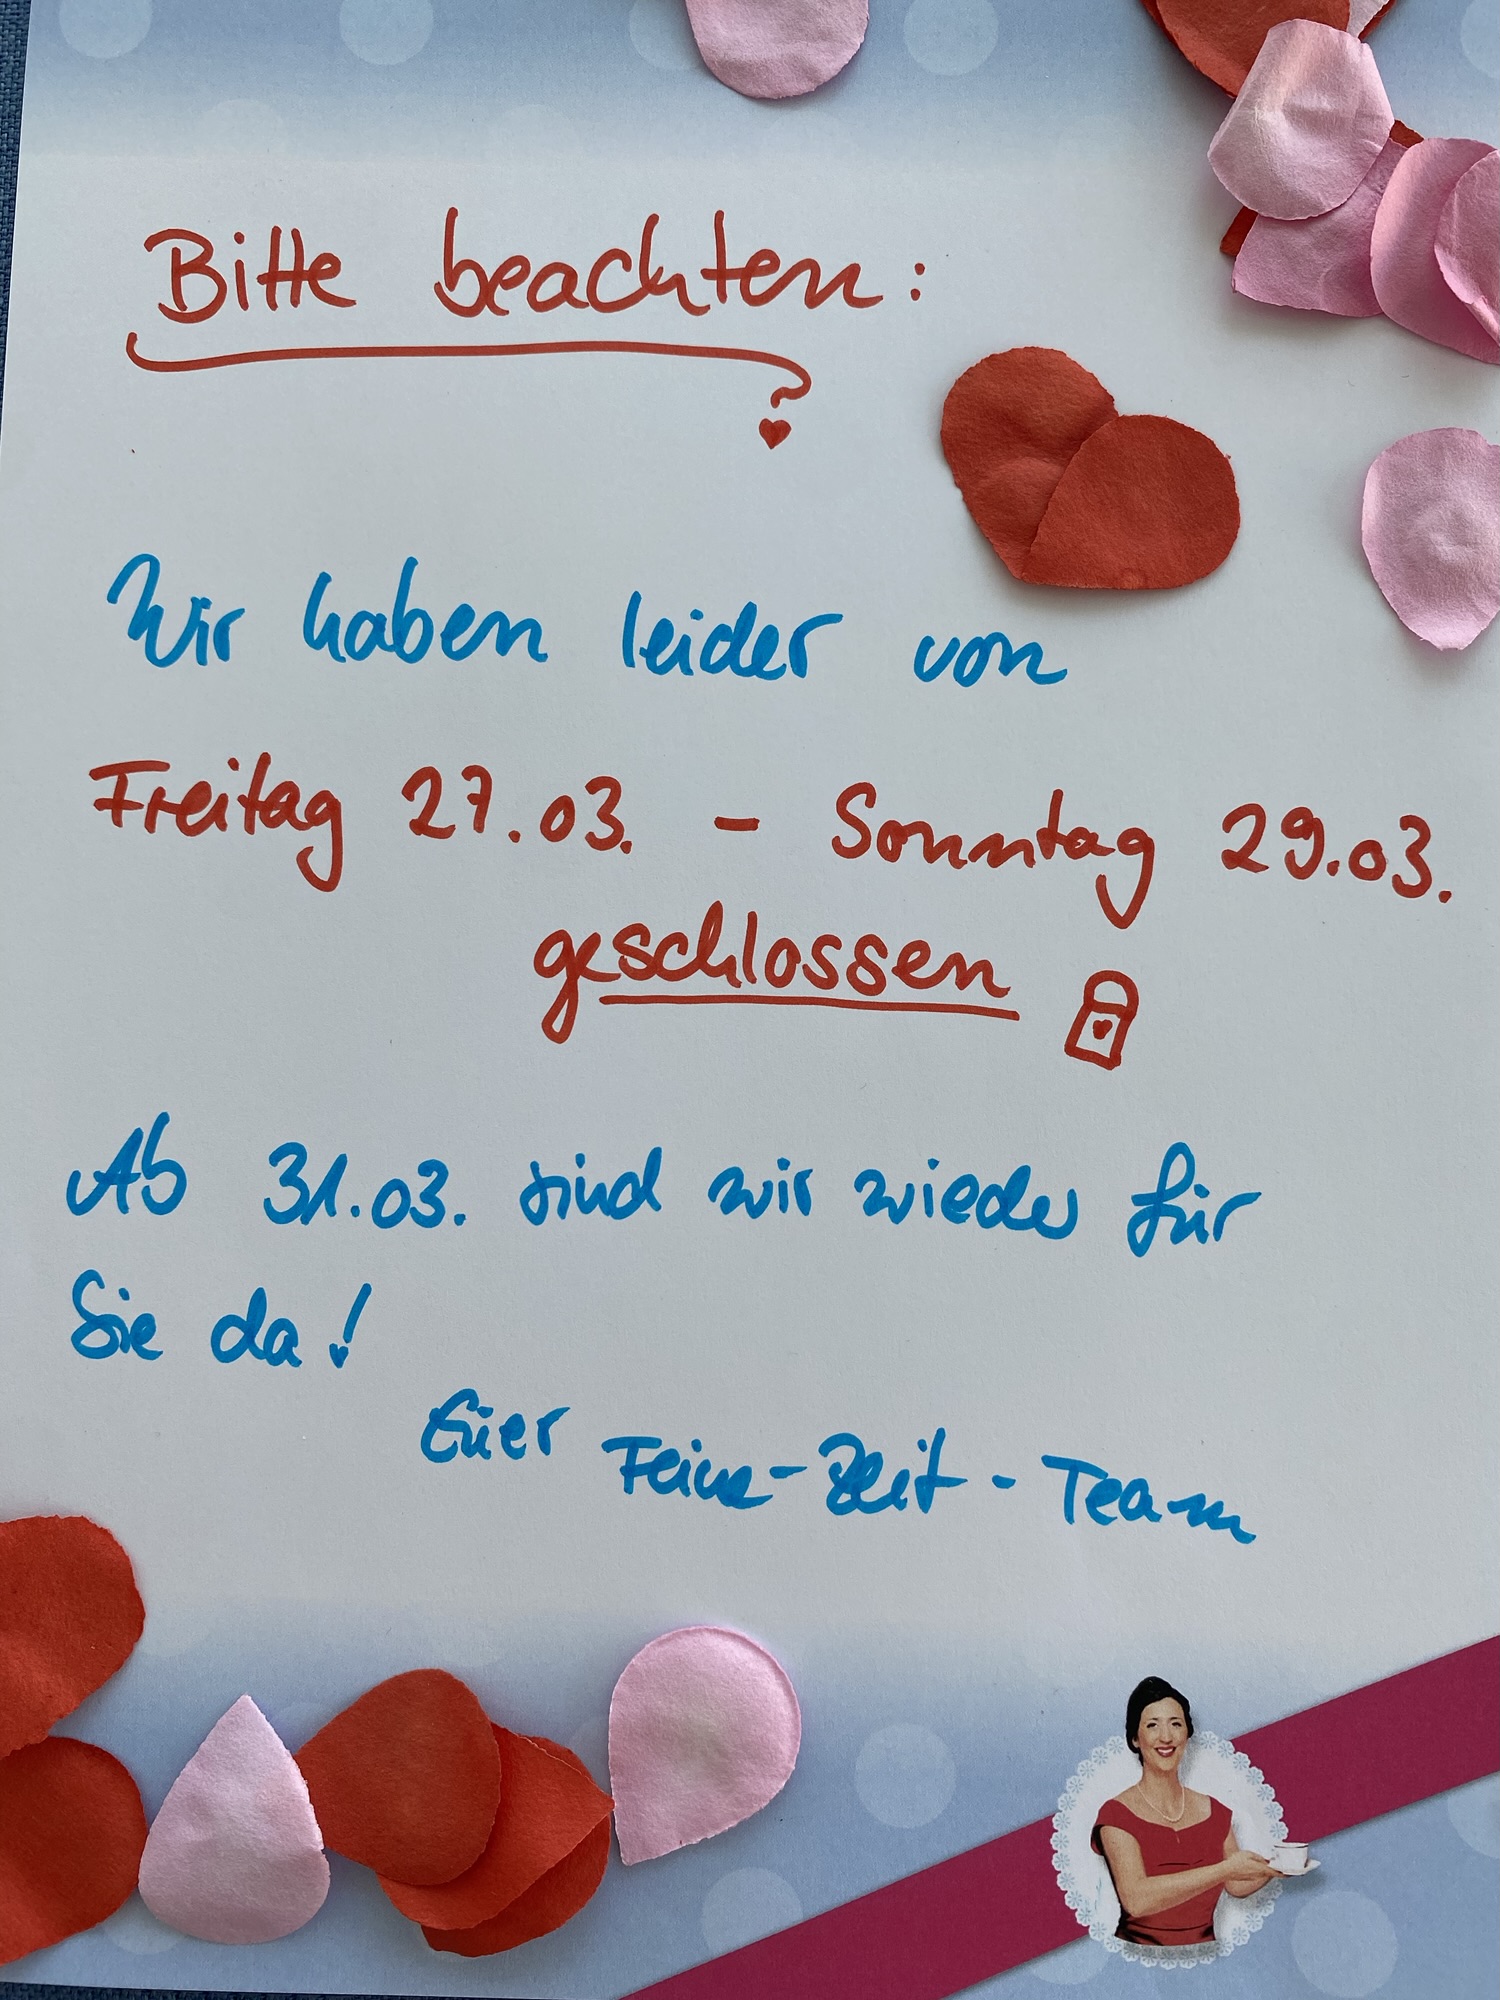 Bitte beachten:
Wir haben leider von
Freitag 27.03. - Sonntag 29.03.
geschlossen
Ab 31.03. sind wir wieder für
Sie da!
Euer Feine-Zeit-Team